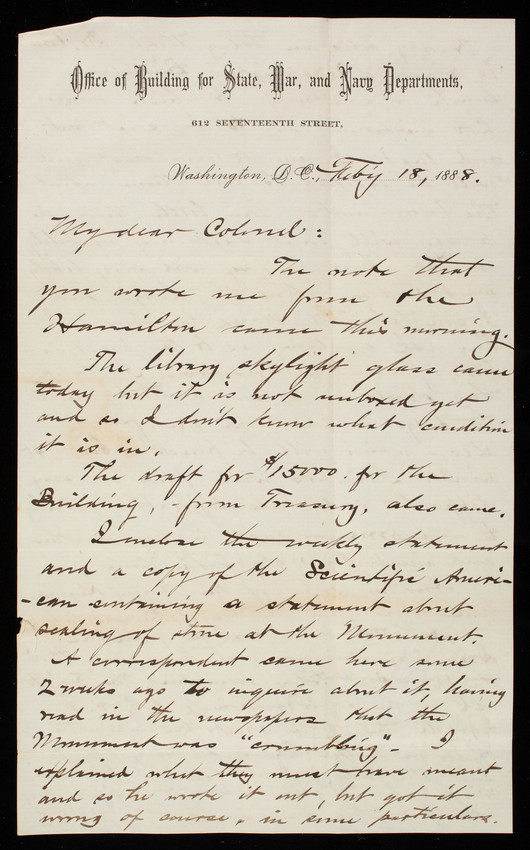 Office of Building for State, War, and Navy Departments,
612 SEVENTEENTH STREET,
Washington, D.C., Feb'y 18, 1888.
My dear Colonel:
The note that
you wrote me from the
Hamilton came this morning.
The library skylight glass came
today but it is not unboxed yet
and so I don't know what condition
it is in.
The draft for $15000. for the
Building, - from Treasury, also came.
I enclose the weekly statement
and a copy of the Scientific Ameri-
-can containing a statement about
sealing of stone at the Monument.
A correspondent came here some
2 weeks ago to inquire about it, having
read in the newspapers that the
Monument was "crumbling" - I
explained what they must have meant
and so he wrote it out, but got it
wrong of course, in some particulars.